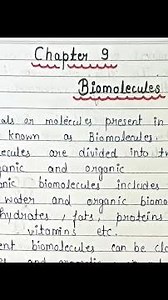 Chapter 9
Biomolecules
als or molecules present in
known as Biomolecules.
ecules are divided into t
ganic and organic
anic biomolecules includes
water and organic biomo
hydrates, fats, proteins
vitamins etc.
ent biomolecules can be cl